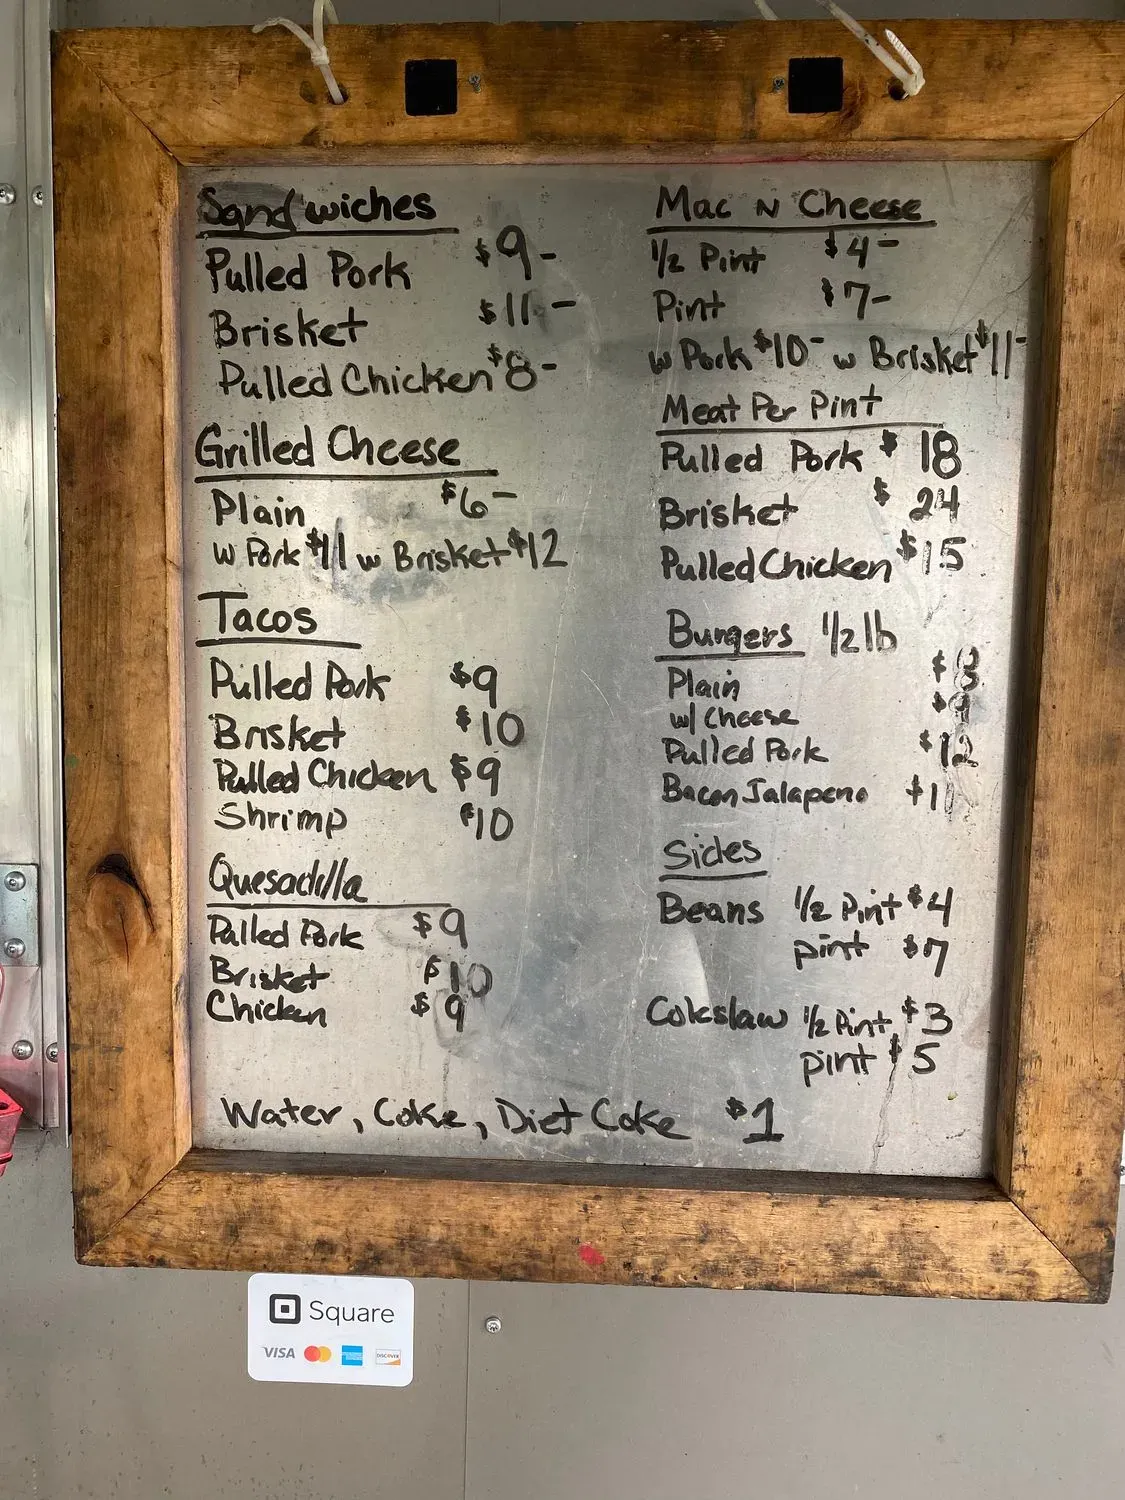 Sandwiches
Pulled Pork $9-
Brisket $11-
Pulled Chicken $8-
Grilled Cheese
Plain $6-
w Pork $11 w Brisket $12
Tacos
Pulled Pork $9
Brisket $10
Pulled Chicken $9
Shrimp $10
Quesadilla
Pulled Pork $9
Brisket $10
Chicken $9
Mac N Cheese
1/2 Pint $4-
Pint $7-
w Pork $10- w Brisket $11-
Meat Per Pint
Pulled Pork $18
Brisket $24
Pulled Chicken $15
Burgers 1/2 lb
Plain $8
w/ Cheese $9
Pulled Pork $12
Bacon Jalapeno
Sides
Beans 1/2 Pint $4
pint $7
Coleslaw 1/2 Pint $3
pint $5
Water, Coke, Diet Coke $1
Square
VISA
DISCOVER